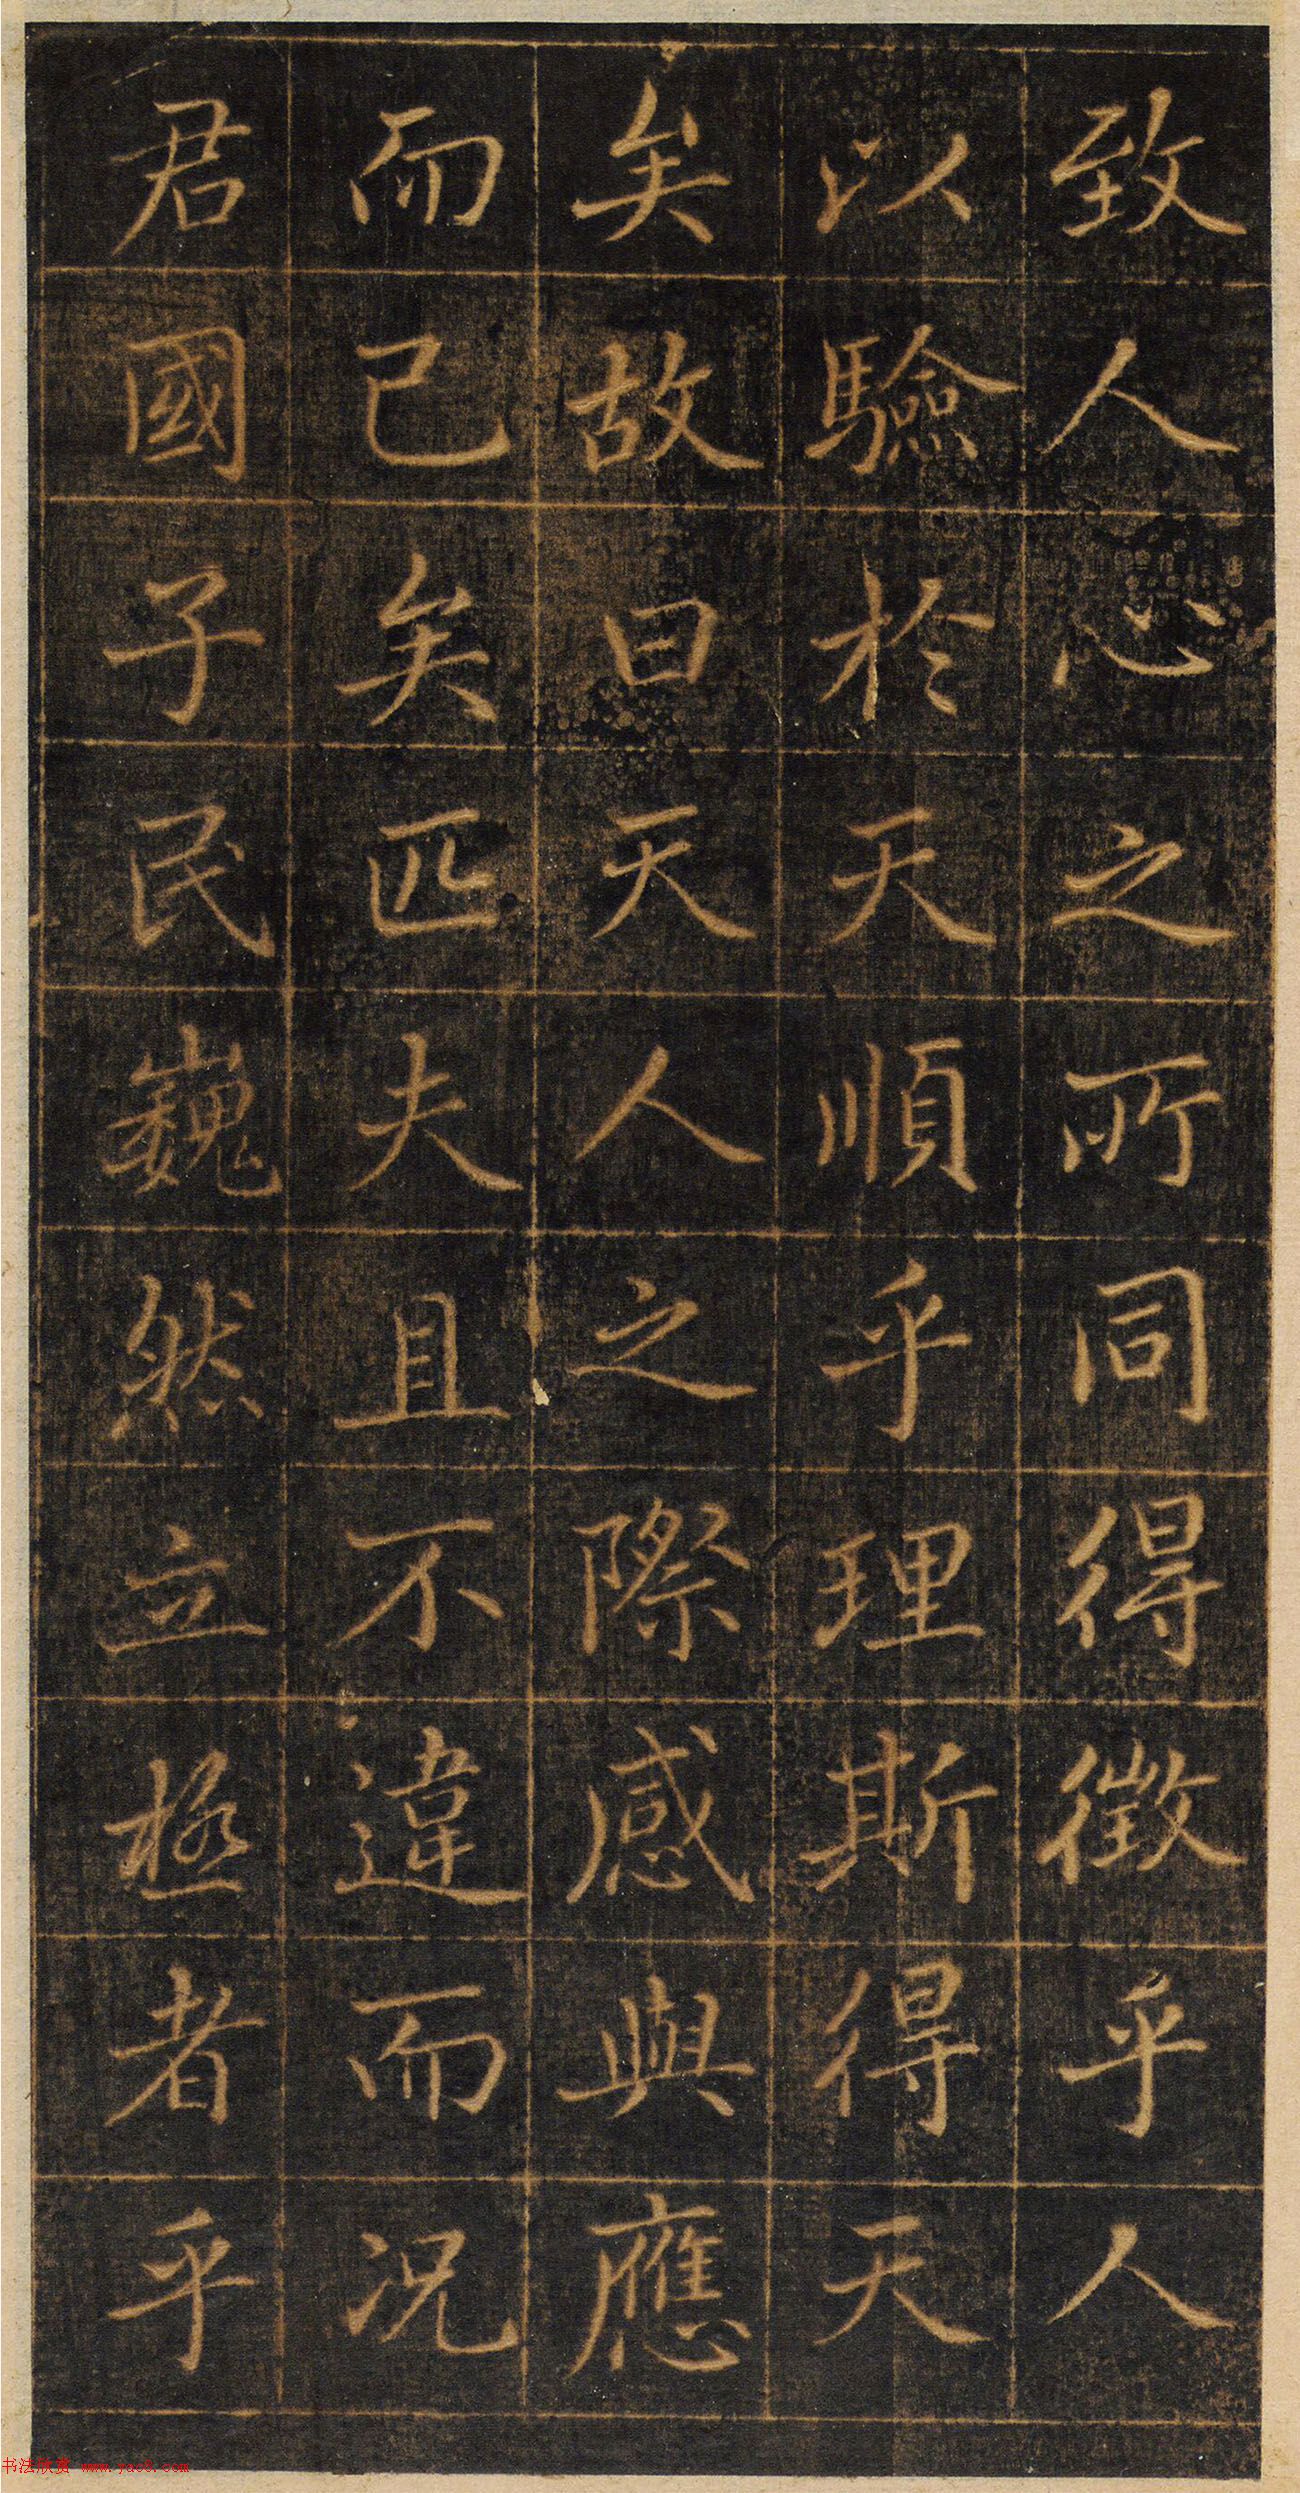 致人心之所同得徴乎人
以驗於天順乎理斯得天
矣故曰天人之際感與應
而已矣匹夫且不違而况
君國子民巍然立極者乎
书法欣赏 www.yac8.com